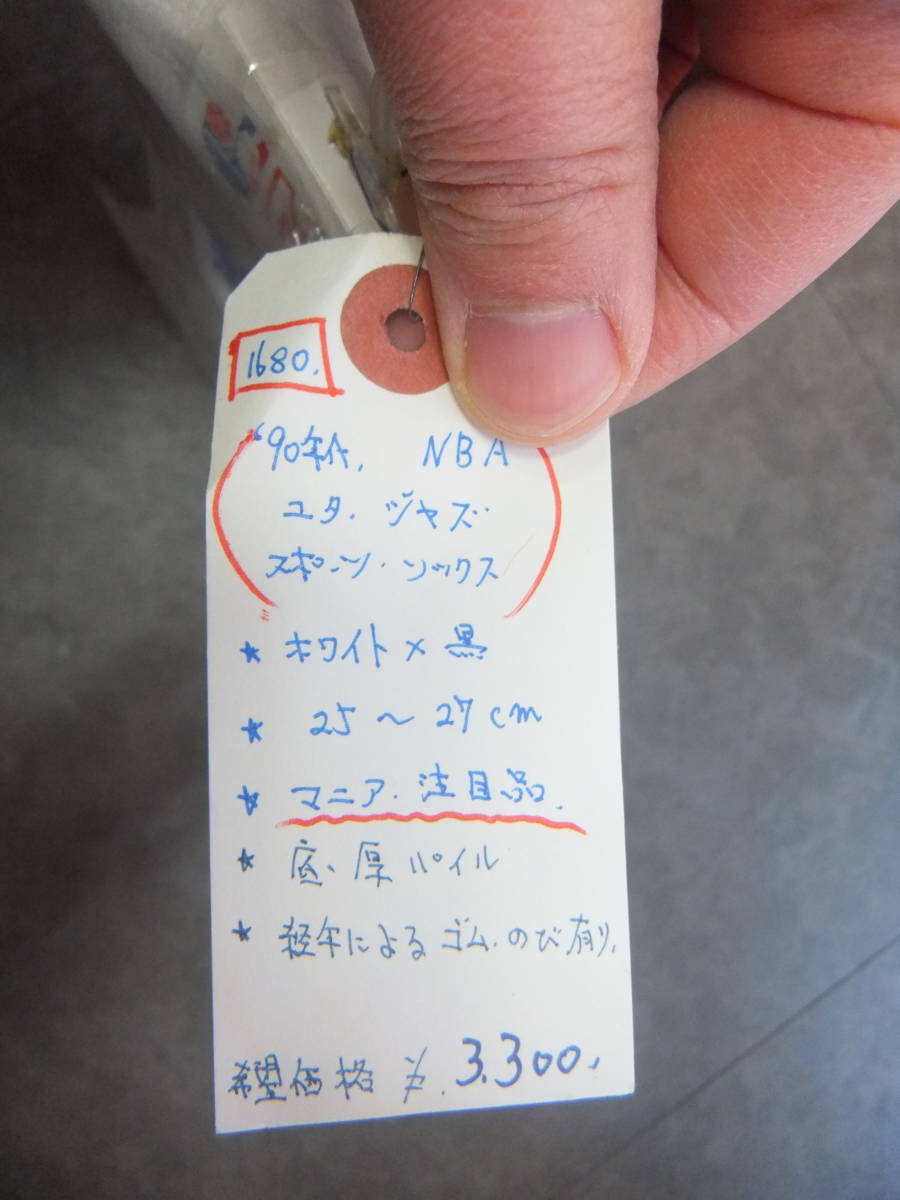 1680.
'90年代. NBA
ユタ・ジャズ
スポーツ・ソックス
★ ホワイト×黒
★ 25〜27cm
★ マニア・注目品.
★ 底・厚パイル
★ 経年によるゴム・のび有り.
希望価格 ¥.3.300.